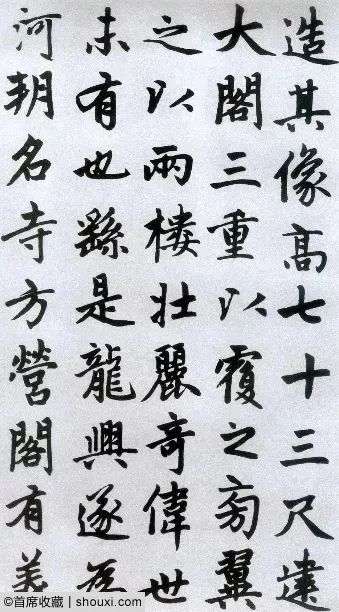 造其像高七十三尺建
大閣三重以覆之旁翼
之以兩樓壯麗奇偉世
未有也繇是龍興遂為
河朔名寺方營閣有美
首席收藏 | shouxi.com